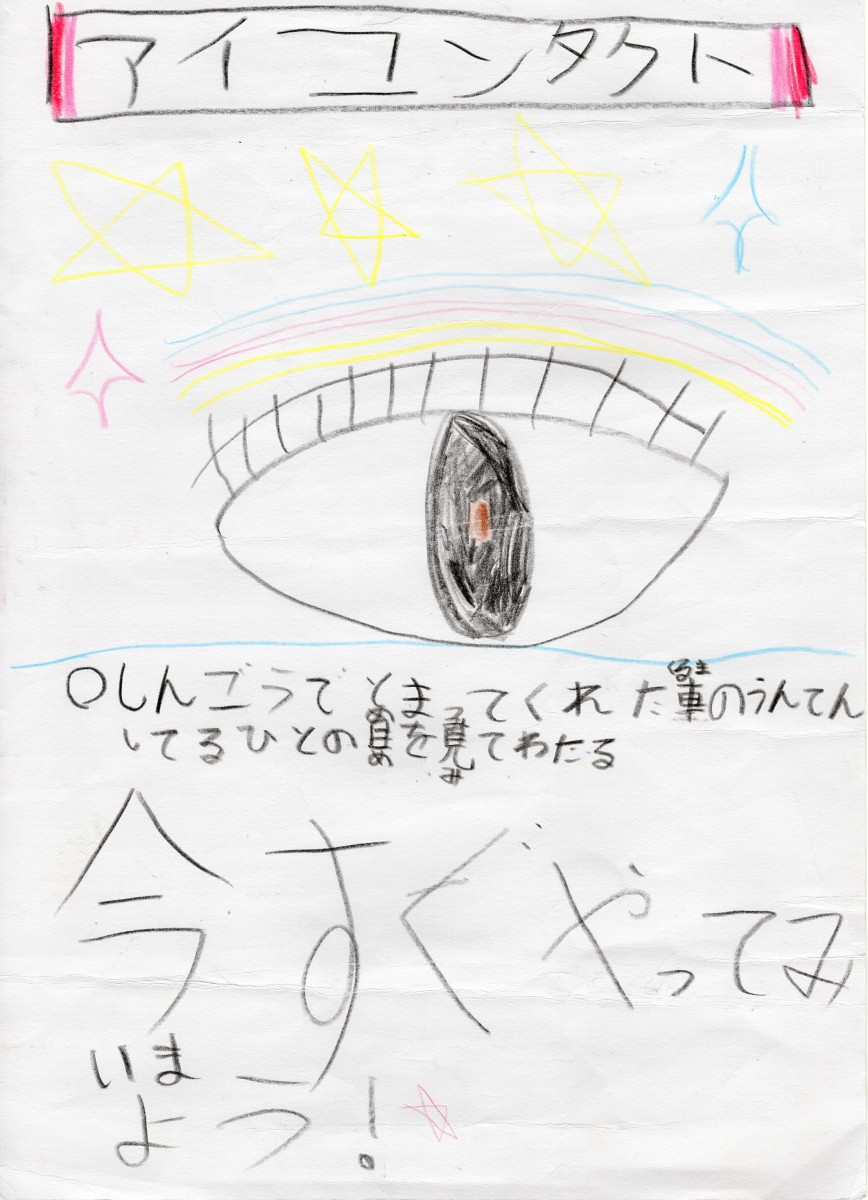 アイコンタクト
○しんごうでとまってくれた車のうんてん
くるま
してるひとの目を見てわたる
め
み
今すぐやってみ
いま
よう!